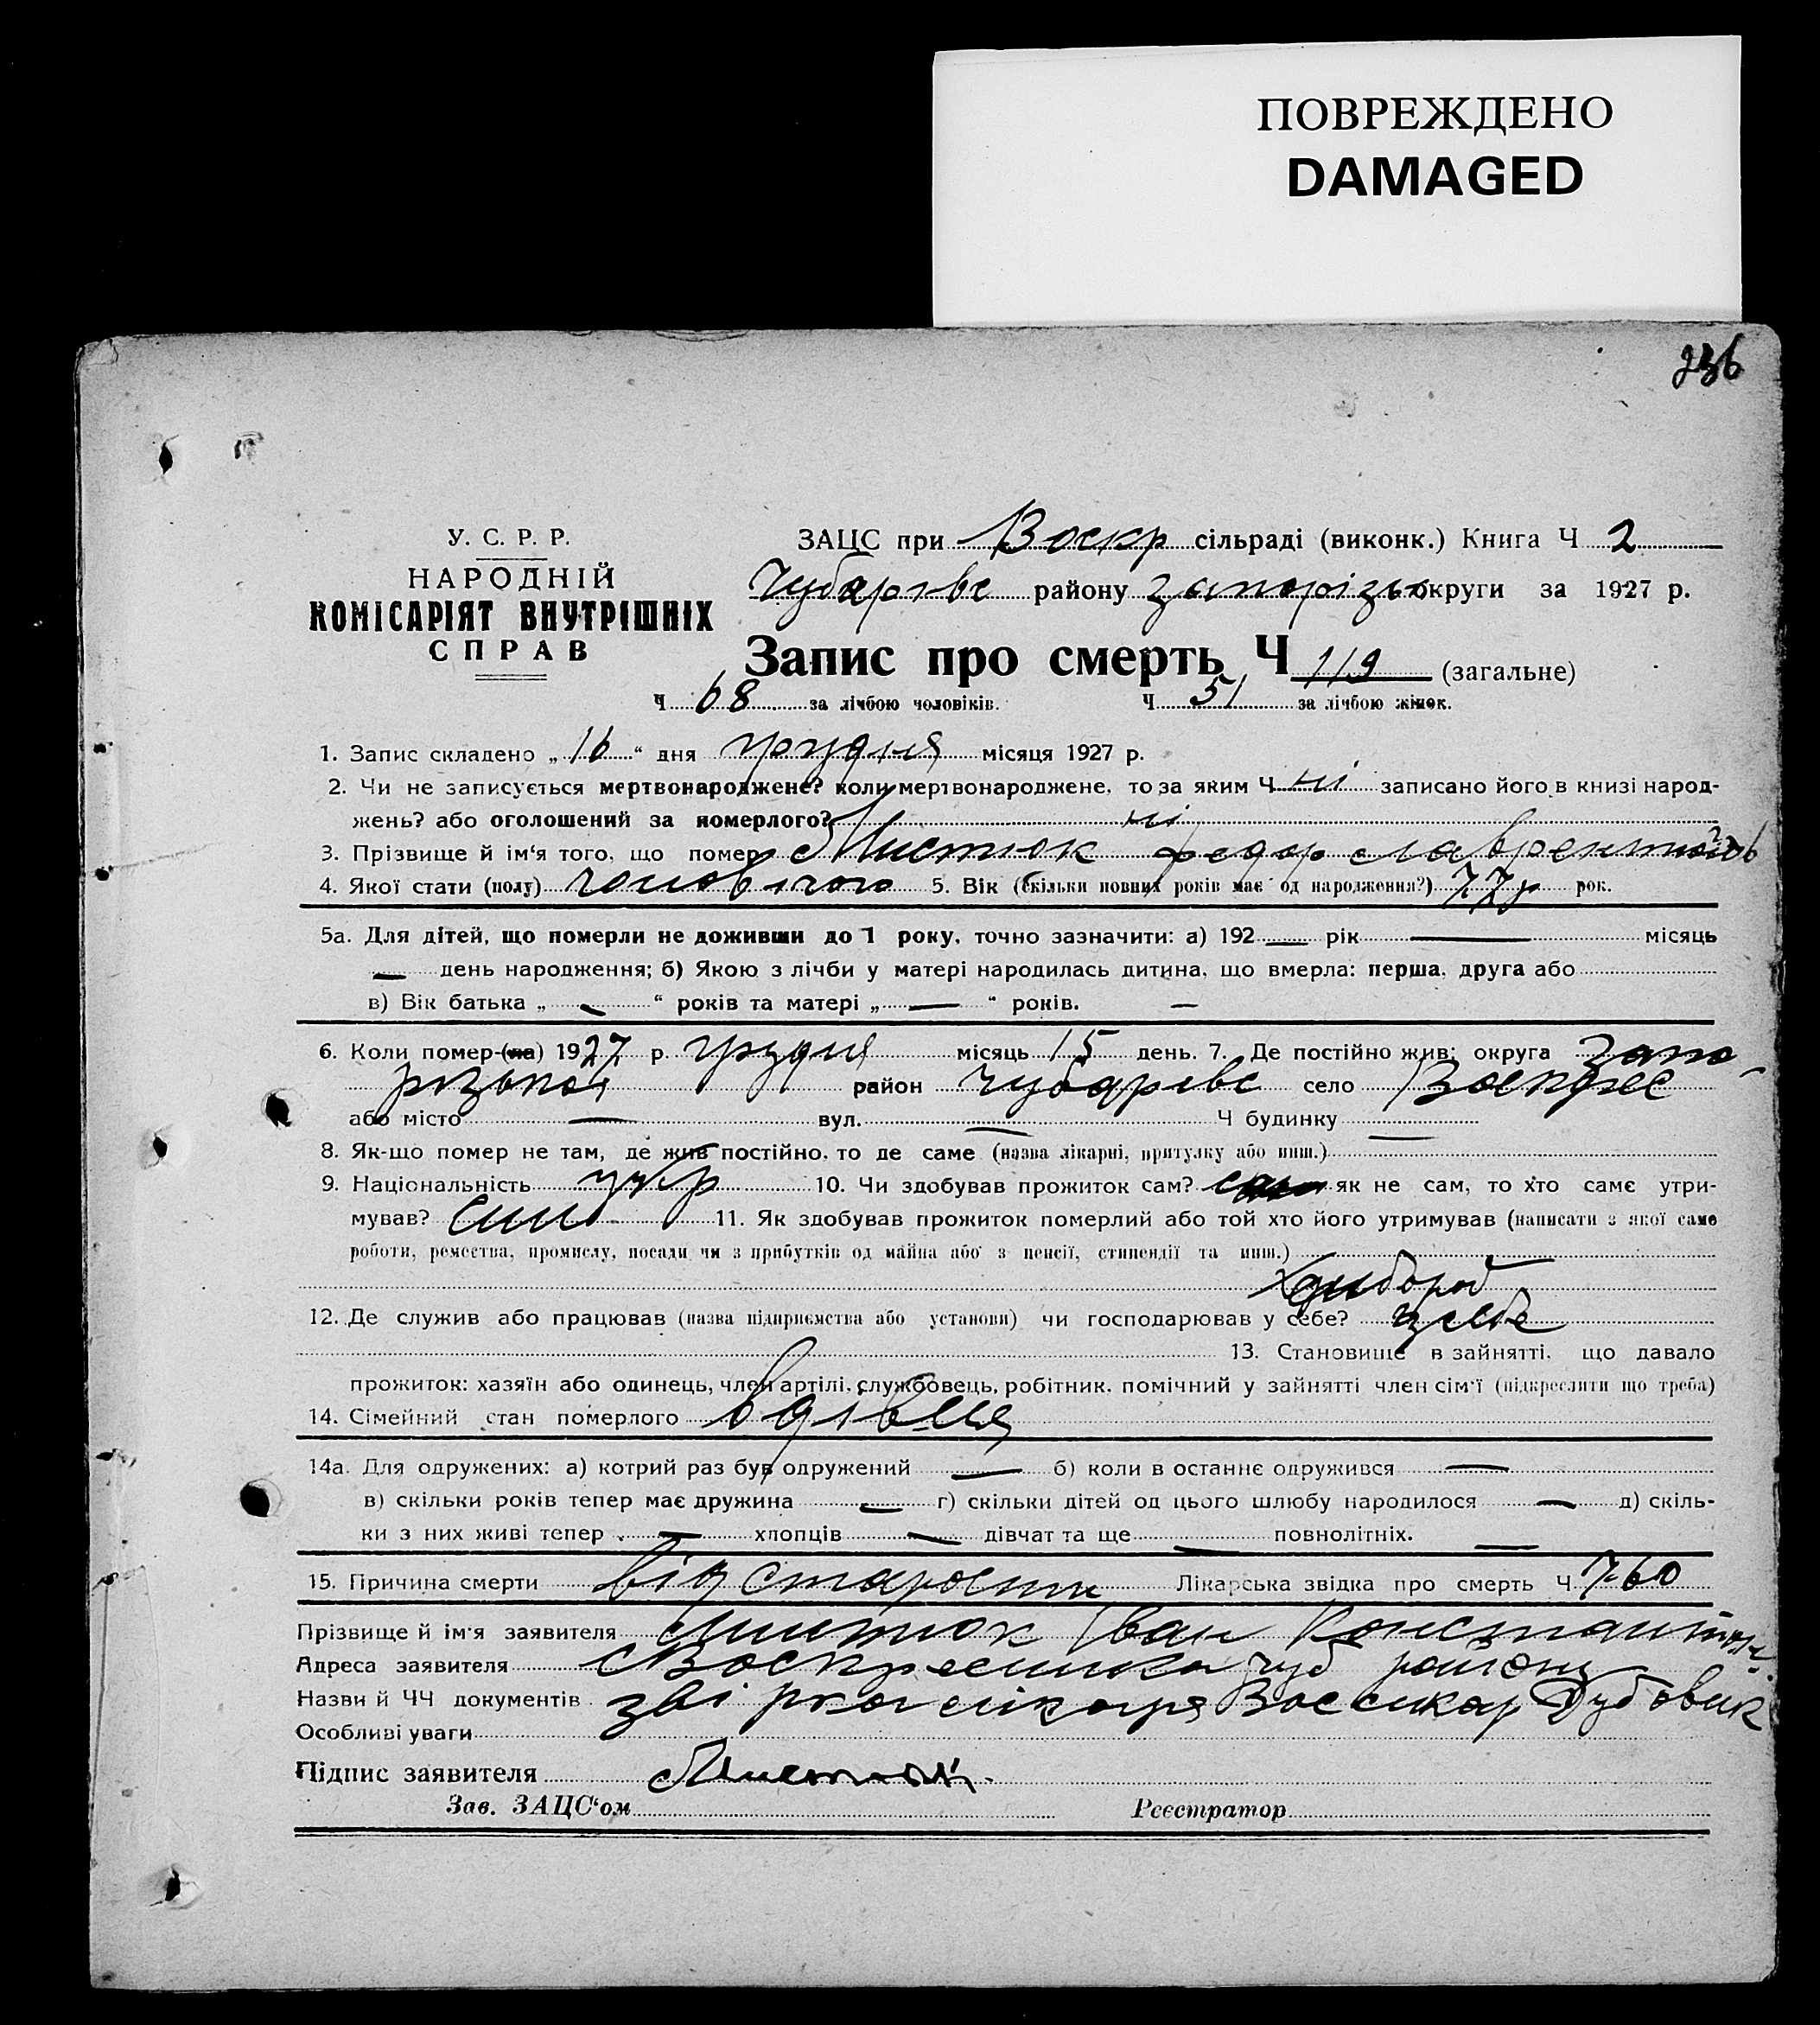 ПОВРЕЖДЕНО
DAMAGED
236
У. С. Р. Р.
НАРОДНІЙ
КОМІСАРІЯТ ВНУТРІШНІХ
СПРАВ
ЗАЦС при Воскр сільраді (виконк.) Книга Ч 2
Чубарівс району Запорізьк округи за 1927 р.
Запис про смерть Ч 119 (загальне)
Ч 68 за лічбою чоловіків. Ч 51 за лічбою жінок.
1. Запис складено „16“ дня грудня місяця 1927 р.
2. Чи не записується мертвонароджене? коли мертвонароджене, то за яким Ч ні записано його в книзі народ-
жень? або оголошений за померлого? ні
3. Прізвище й ім‘я того, що помер Федор Лаврентійов
4. Якої стати (полу) чоловічого 5. Вік (скільки повних років має од народження?) 77 р рок.
5а. Для дітей, що померли не доживши до 1 року, точно зазначити: а) 192 — рік — місяць
— день народження; б) Якою з лічби у матері народилась дитина, що вмерла: перша, друга або
в) Вік батька „ — “ років та матері „ — “ років. —
6. Коли помер (ла) 1927 р. грудня місяць 15 день. 7. Де постійно жив: округа Запо-
різької район Чубарівс село Воскрес
або місто — вул. — Ч будинку —
8. Як-що помер не там, де жив постійно, то де саме (назва лікарні, притулку або инш.)
9. Національність укр 10. Чи здобував прожиток сам? як не сам, то хто саме утри-
мував? син 11. Як здобував прожиток померлий або той хто його утримував (написати з якої саме
роботи, ремества, промислу, посади чи з прибутків од майна або з пенсії, стипендії та инш.)
Хлибороб
12. Де служив або працював (назва підприємства або установи) чи господарював у себе? у себе
13. Становище в зайнятті, що давало
прожиток: хазяїн або одинець, член артілі, службовець, робітник, помічний у зайнятті член сім‘ї (підкреслити що треба)
14. Сімейний стан померлого вдівець
14а. Для одружених: а) котрий раз був одружений — б) коли в останнє одружився —
в) скільки років тепер має дружина — г) скільки дітей од цього шлюбу народилося — д) скіль-
ки з них живі тепер — хлопців — дівчат та ще — повнолітніх. —
15. Причина смерти від старости Лікарська звідка про смерть Ч 760
Прізвище й ім‘я заявителя Іван Константінов
Адреса заявителя Воскресенка Чуб району
Назви й ЧЧ документів лікаря Дубовик
Особливі уваги
Підпис заявителя
Зав. ЗАЦС‘ом Реєстратор